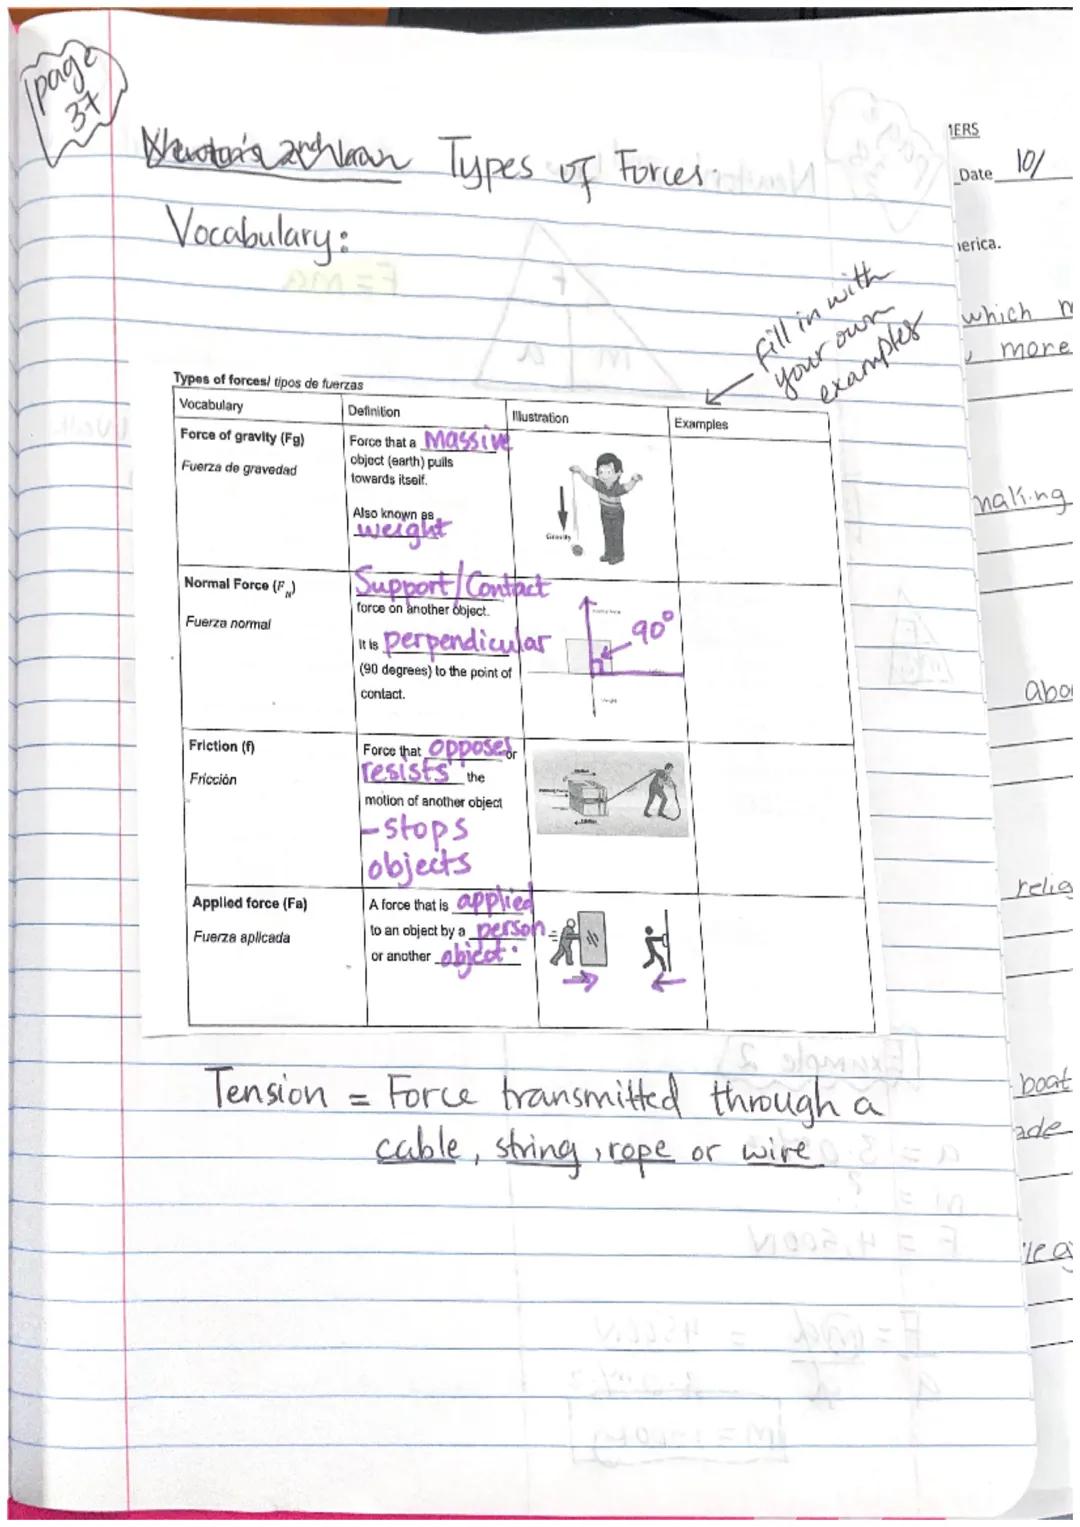 page
37
Types of Forces.
Vocabulary:
Fill in with
your own
examples
Types of forces/ tipos de fuerzas
Vocabulary
Definition
Illustration
Examples
Force of gravity (Fg)
Fuerza de gravedad
Force that a Massive
object (earth) pulls
towards itself.
Also known as
weight
Gravity
Normal Force (F_N)
Fuerza normal
Support/Contact
force on another object.
It is perpendicular
(90 degrees) to the point of
contact.
90°
Friction (f)
Fricción
Force that opposes or
resists the
motion of another object
-stops
objects
Applied force (Fa)
Fuerza aplicada
A force that is applied
to an object by a person
or another object.
Tension = Force transmitted through a
cable, string, rope or wire
Date 10/
which
more
making
boat